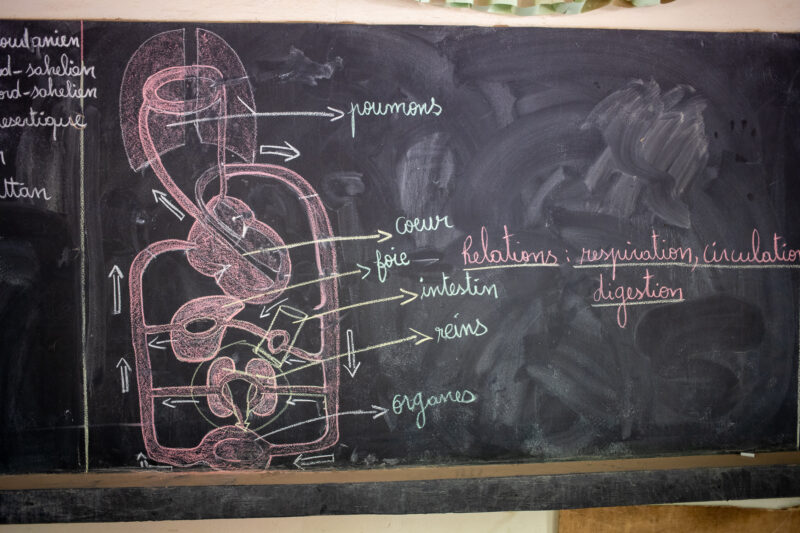 oudanien
d-sahelien
ord-sahelien
esertique
poumons
coeur
foie
intestin
reins
organes
Relations : respiration, circulation
digestion